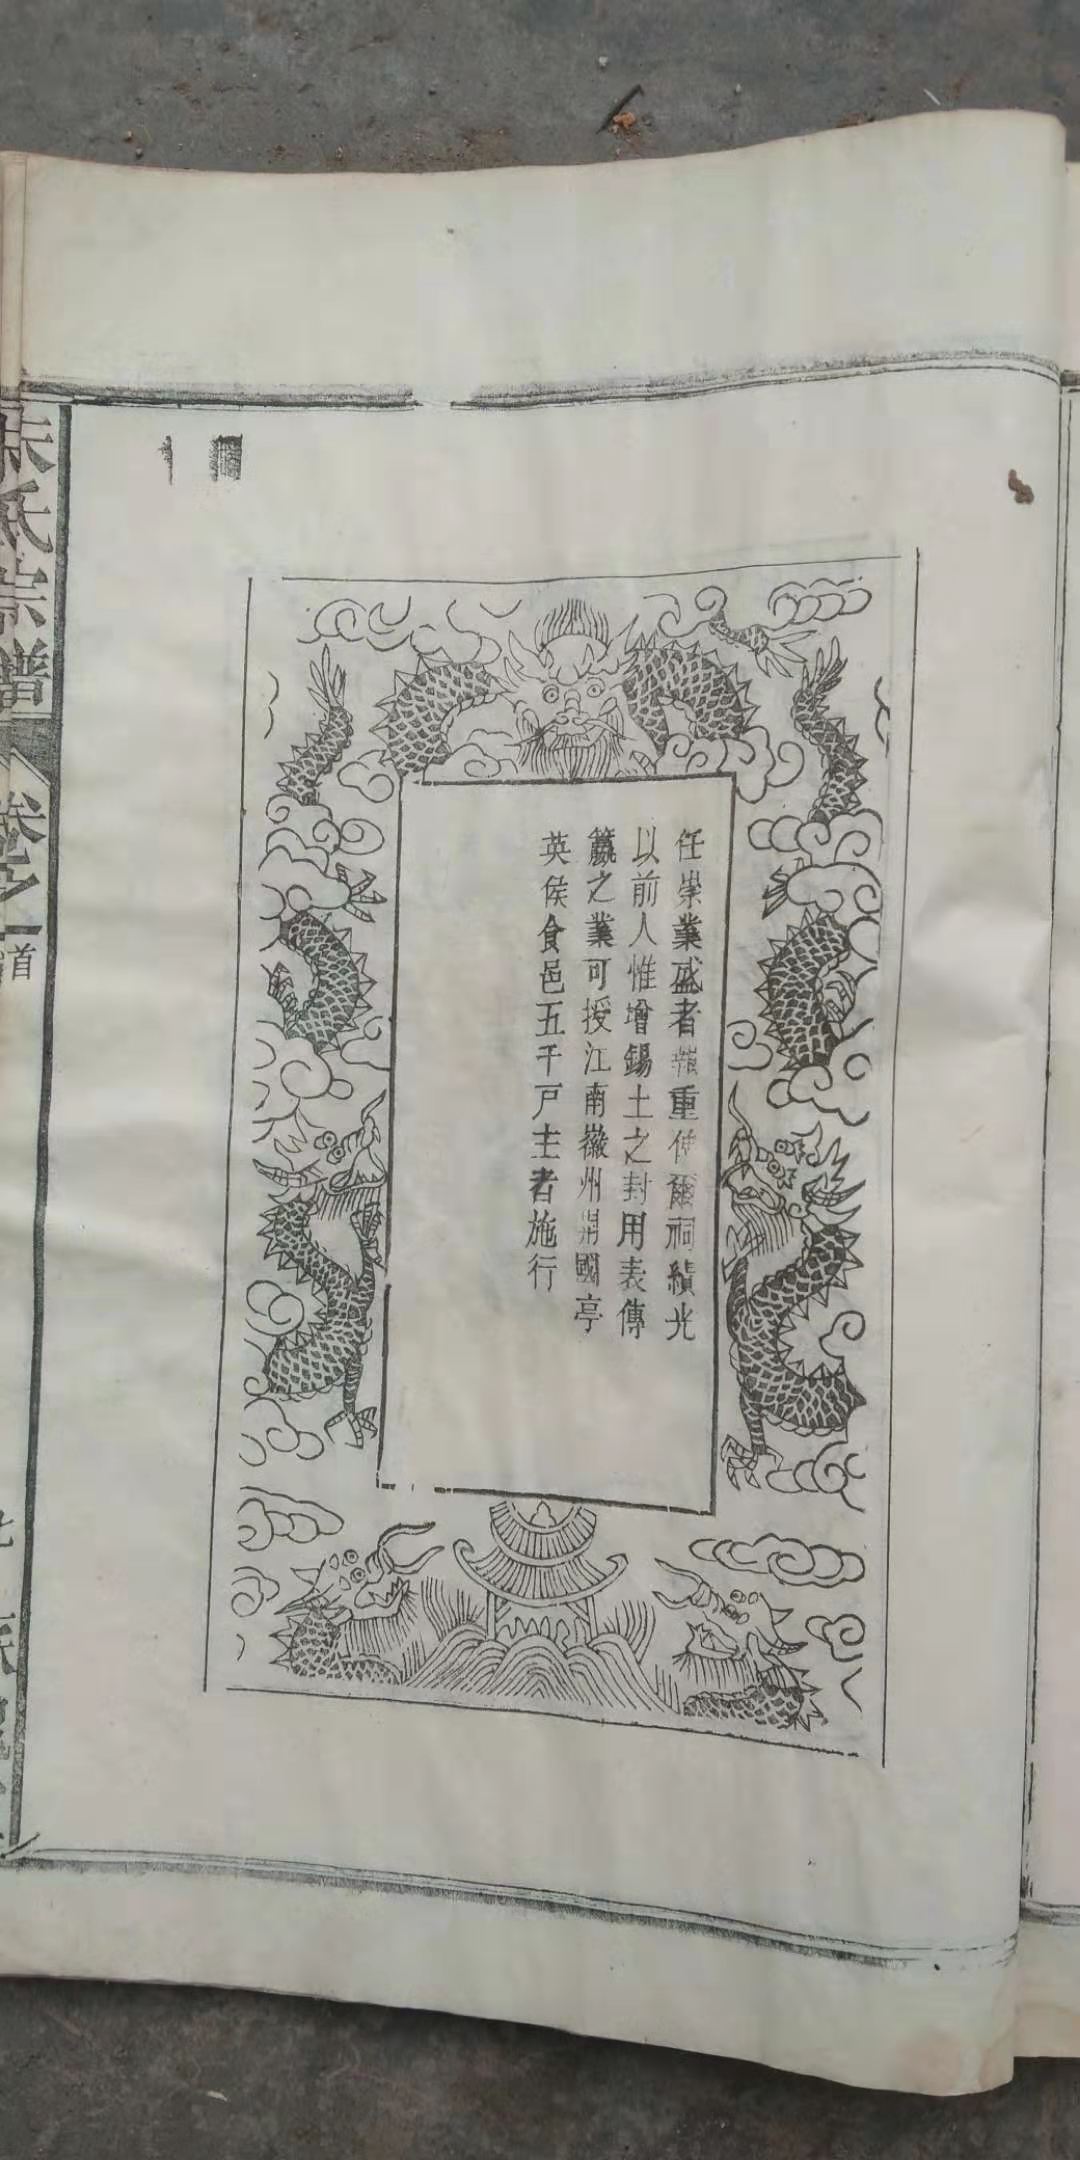 任崇業盛者報重使爾祠績光
以前人惟增錫土之封用表傳
籯之業可授江南徽州開國亭
英侯食邑五千戸主者施行
氏宗譜
卷之
首